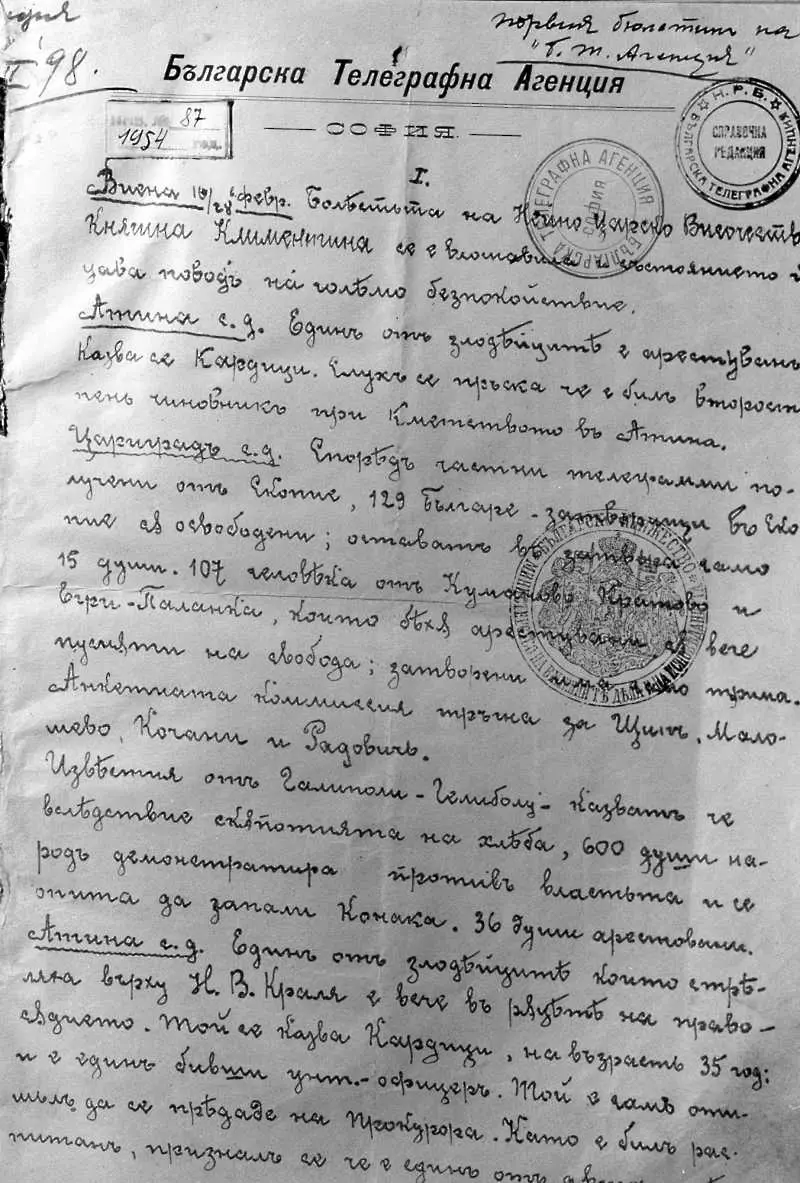 първия бюлетин на
"Б. Т. Агенция"
98.
Българска Телеграфна Агенция
87
1954
СОФИЯ.
Н.Р.Б.
СПРАВОЧНА
РЕДАКЦИЯ
БЪЛГАРСКА ТЕЛЕГРАФНА АГЕНЦИЯ
ТЕЛЕГРАФНА АГЕНЦИЯ
СОФИЯ
I.
Виена 16/28 февр. Болѣстьта на Нейно Царско Височеств
Княгина Клементина се е влошавила състоянието ѝ
дава поводъ на голѣмо безпокойствие.
Атина с.д. Единъ отъ злодѣйцитѣ е арестуванъ
Казва се Кардици. Слухъ се пръска че е билъ второст
пенъ чиновникъ при Кметството въ Атина.
Цариградъ с.д. Споредъ частни телеграмми по-
лучени отъ Скопие, 129 Българе - затворници въ Ско
пие сѫ освободени; оставатъ въ затвора само
15 души. 107 человѣка отъ Куманово Кратово и
Егри-Паланка, които бѣхѫ арестувани сѫ вече
пуснѫти на свобода; затворени трима.
Анкетната коммиссия тръгна за Щипъ, Мало-
шево, Кочани и Радовичъ.
Извѣстия отъ Галиполи - Гелиболу - казватъ че
вслѣдствие скѫпотията на хлѣба, 600 души на-
родъ демонстратира противъ властьта и се
опита да запали Конака. 36 души арестовани.
Атина с.д. Единъ отъ злодѣйцитѣ които стрѣ-
ляха върху Н. В. Краля е вече въ рѫцѣтѣ на право-
сѫдието. Той се казва Кардици, на възрасть 35 год:
и е единъ бивши унт.-офицеръ. Той е самъ оти-
шелъ да се прѣдаде на Прокурора. Като е билъ рас-
питанъ, призналъ се че е единъ отъ